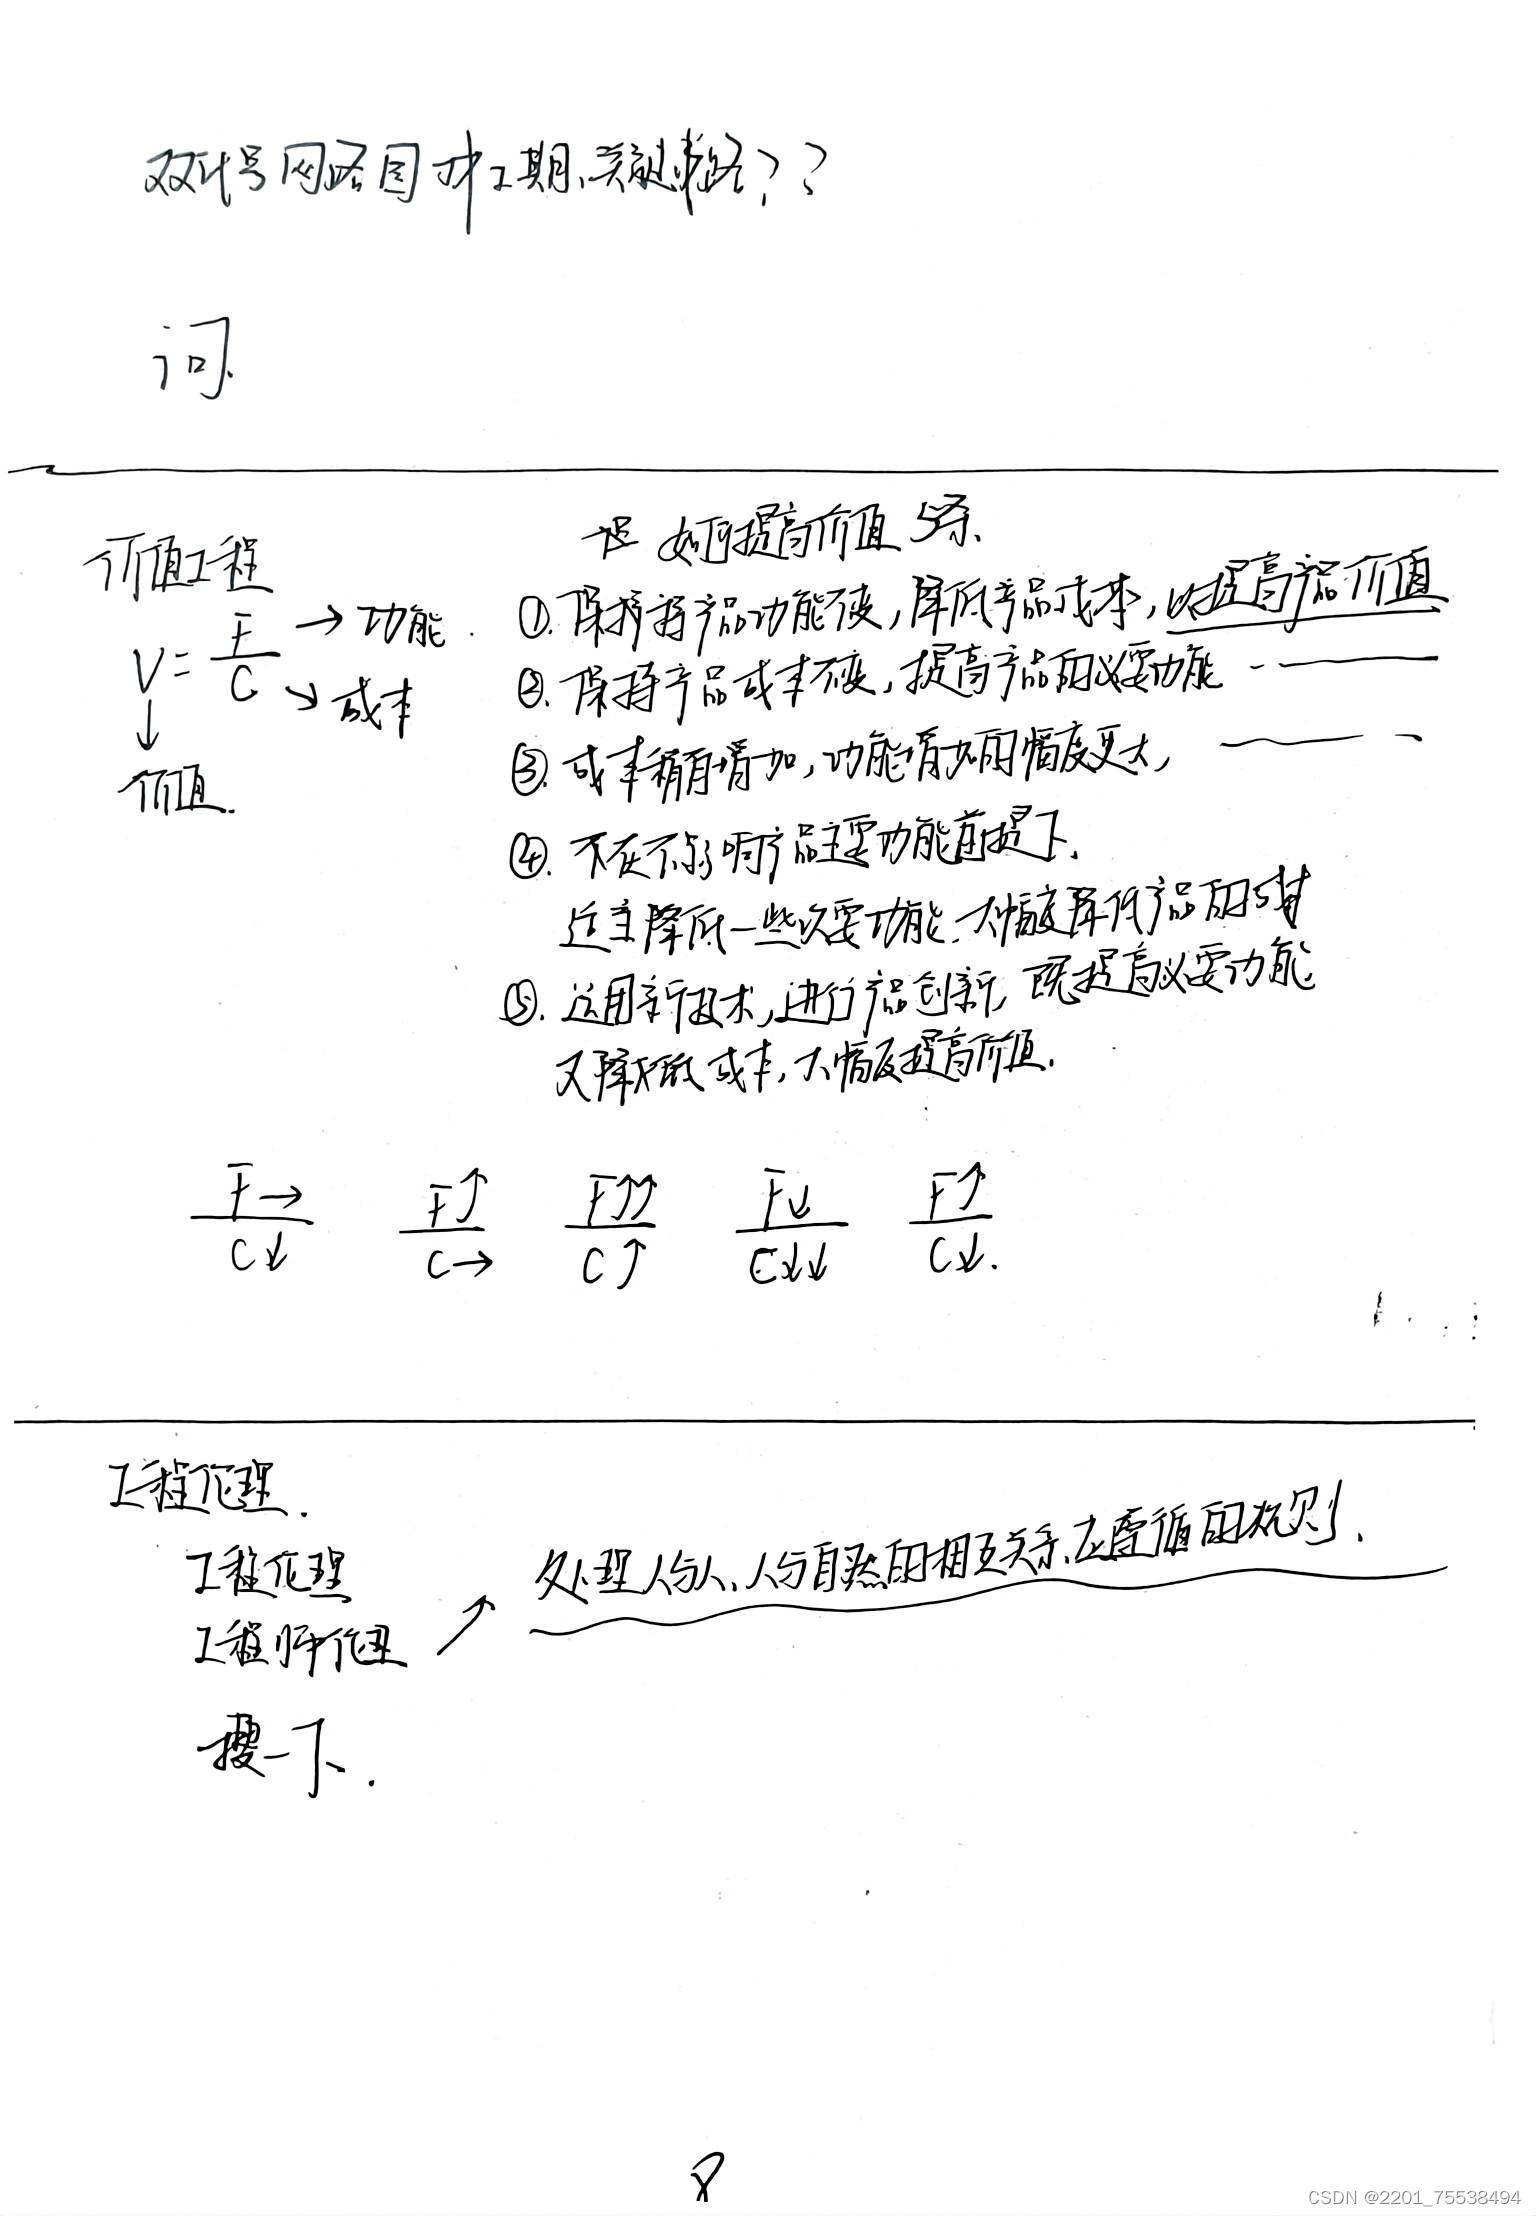 双代号网路图 求工期、关键路??
问.
价值工程
V = F/C
→ 功能
→ 成本
↓
价值.
如何提高价值 5条.
①. 保持产品功能不变, 降低产品成本, 以提高产品价值
②. 保持产品成本不变, 提高产品的必要功能
③. 成本稍有增加, 功能增加的幅度更大,
④. 在不影响产品主要功能前提下.
降低一些次要功能. 大幅度降低产品的成本
⑤. 运用新技术, 进行产品创新, 既提高必要功能
又降低成本, 大幅度提高价值.
F→ F↑ F↑↑ F↓ F↑
C↓ C→ C↑ C↓↓ C↓.
工程伦理.
工程伦理
工程师伦理
↗ 处理人与人、人与自然的相互关系、应遵循的规则.
搜一下.
8
CSDN @2201_75538494